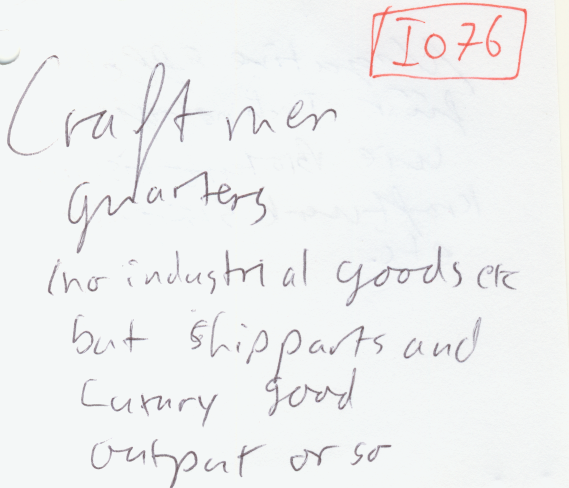 I076
Craftmen
quarters
(no industrial goods etc
but shipparts and
Luxury good
output or so